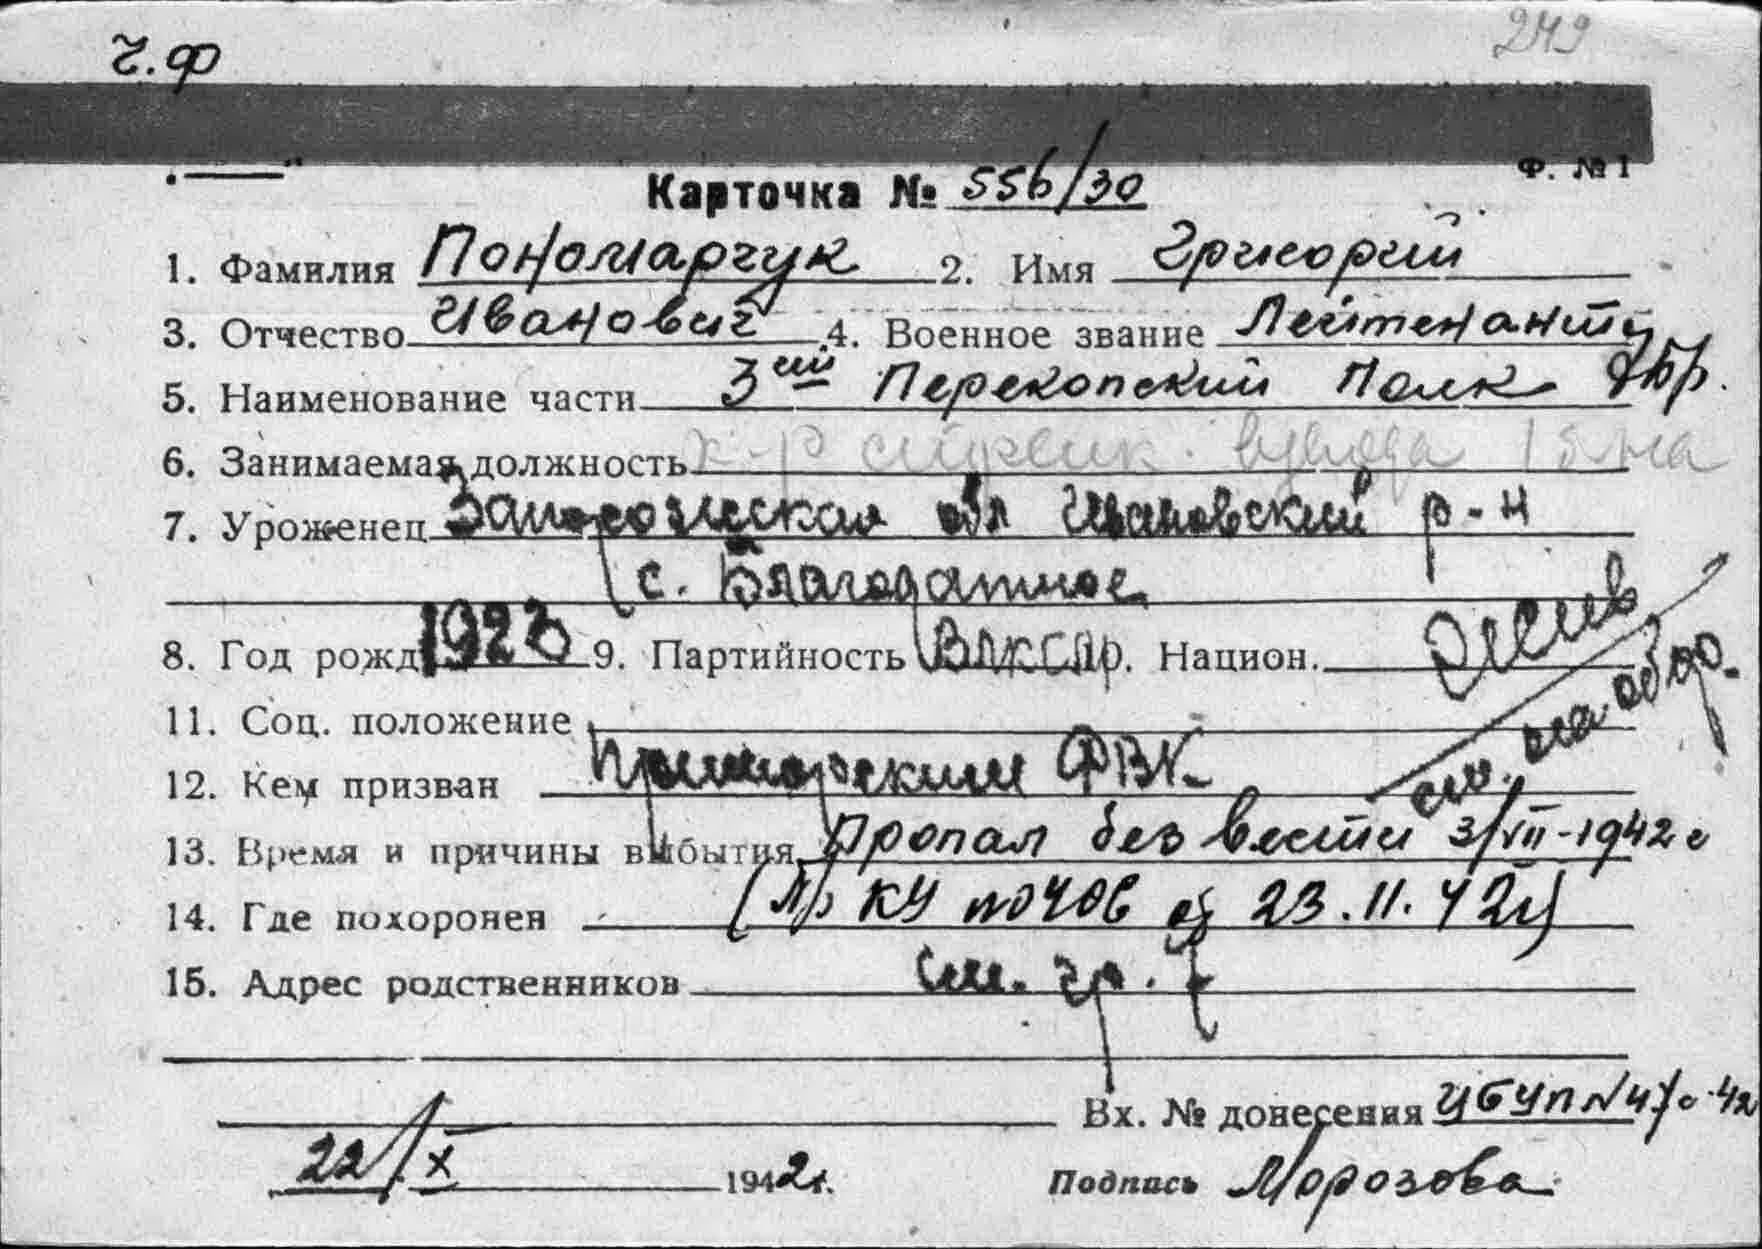 Ч.Ф
249
Ф. № 1
Карточка № 556/30
1. Фамилия Пономарчук 2. Имя Григорий
3. Отчество Иванович 4. Военное звание Лейтенант
5. Наименование части 3ий Перекопский Полк
6. Занимаемая должность к-р стрелк. взвода
7. Уроженец Запорожская обл Ивановский р-н
с. Благодатное
8. Год рожд 1923 9. Партийность ВЛКСМ р. Национ.
11. Соц. положение
см. на обор.
12. Кем призван Приморским ФВК
13. Время и причины выбытия Пропал без вести 3/VII-1942 г
14. Где похоронен (Пр КУ № 0406 от 23.11.42г)
15. Адрес родственников см. гр. 7
Вх. № донесения
22/X 1942г.
Подпись Морозова